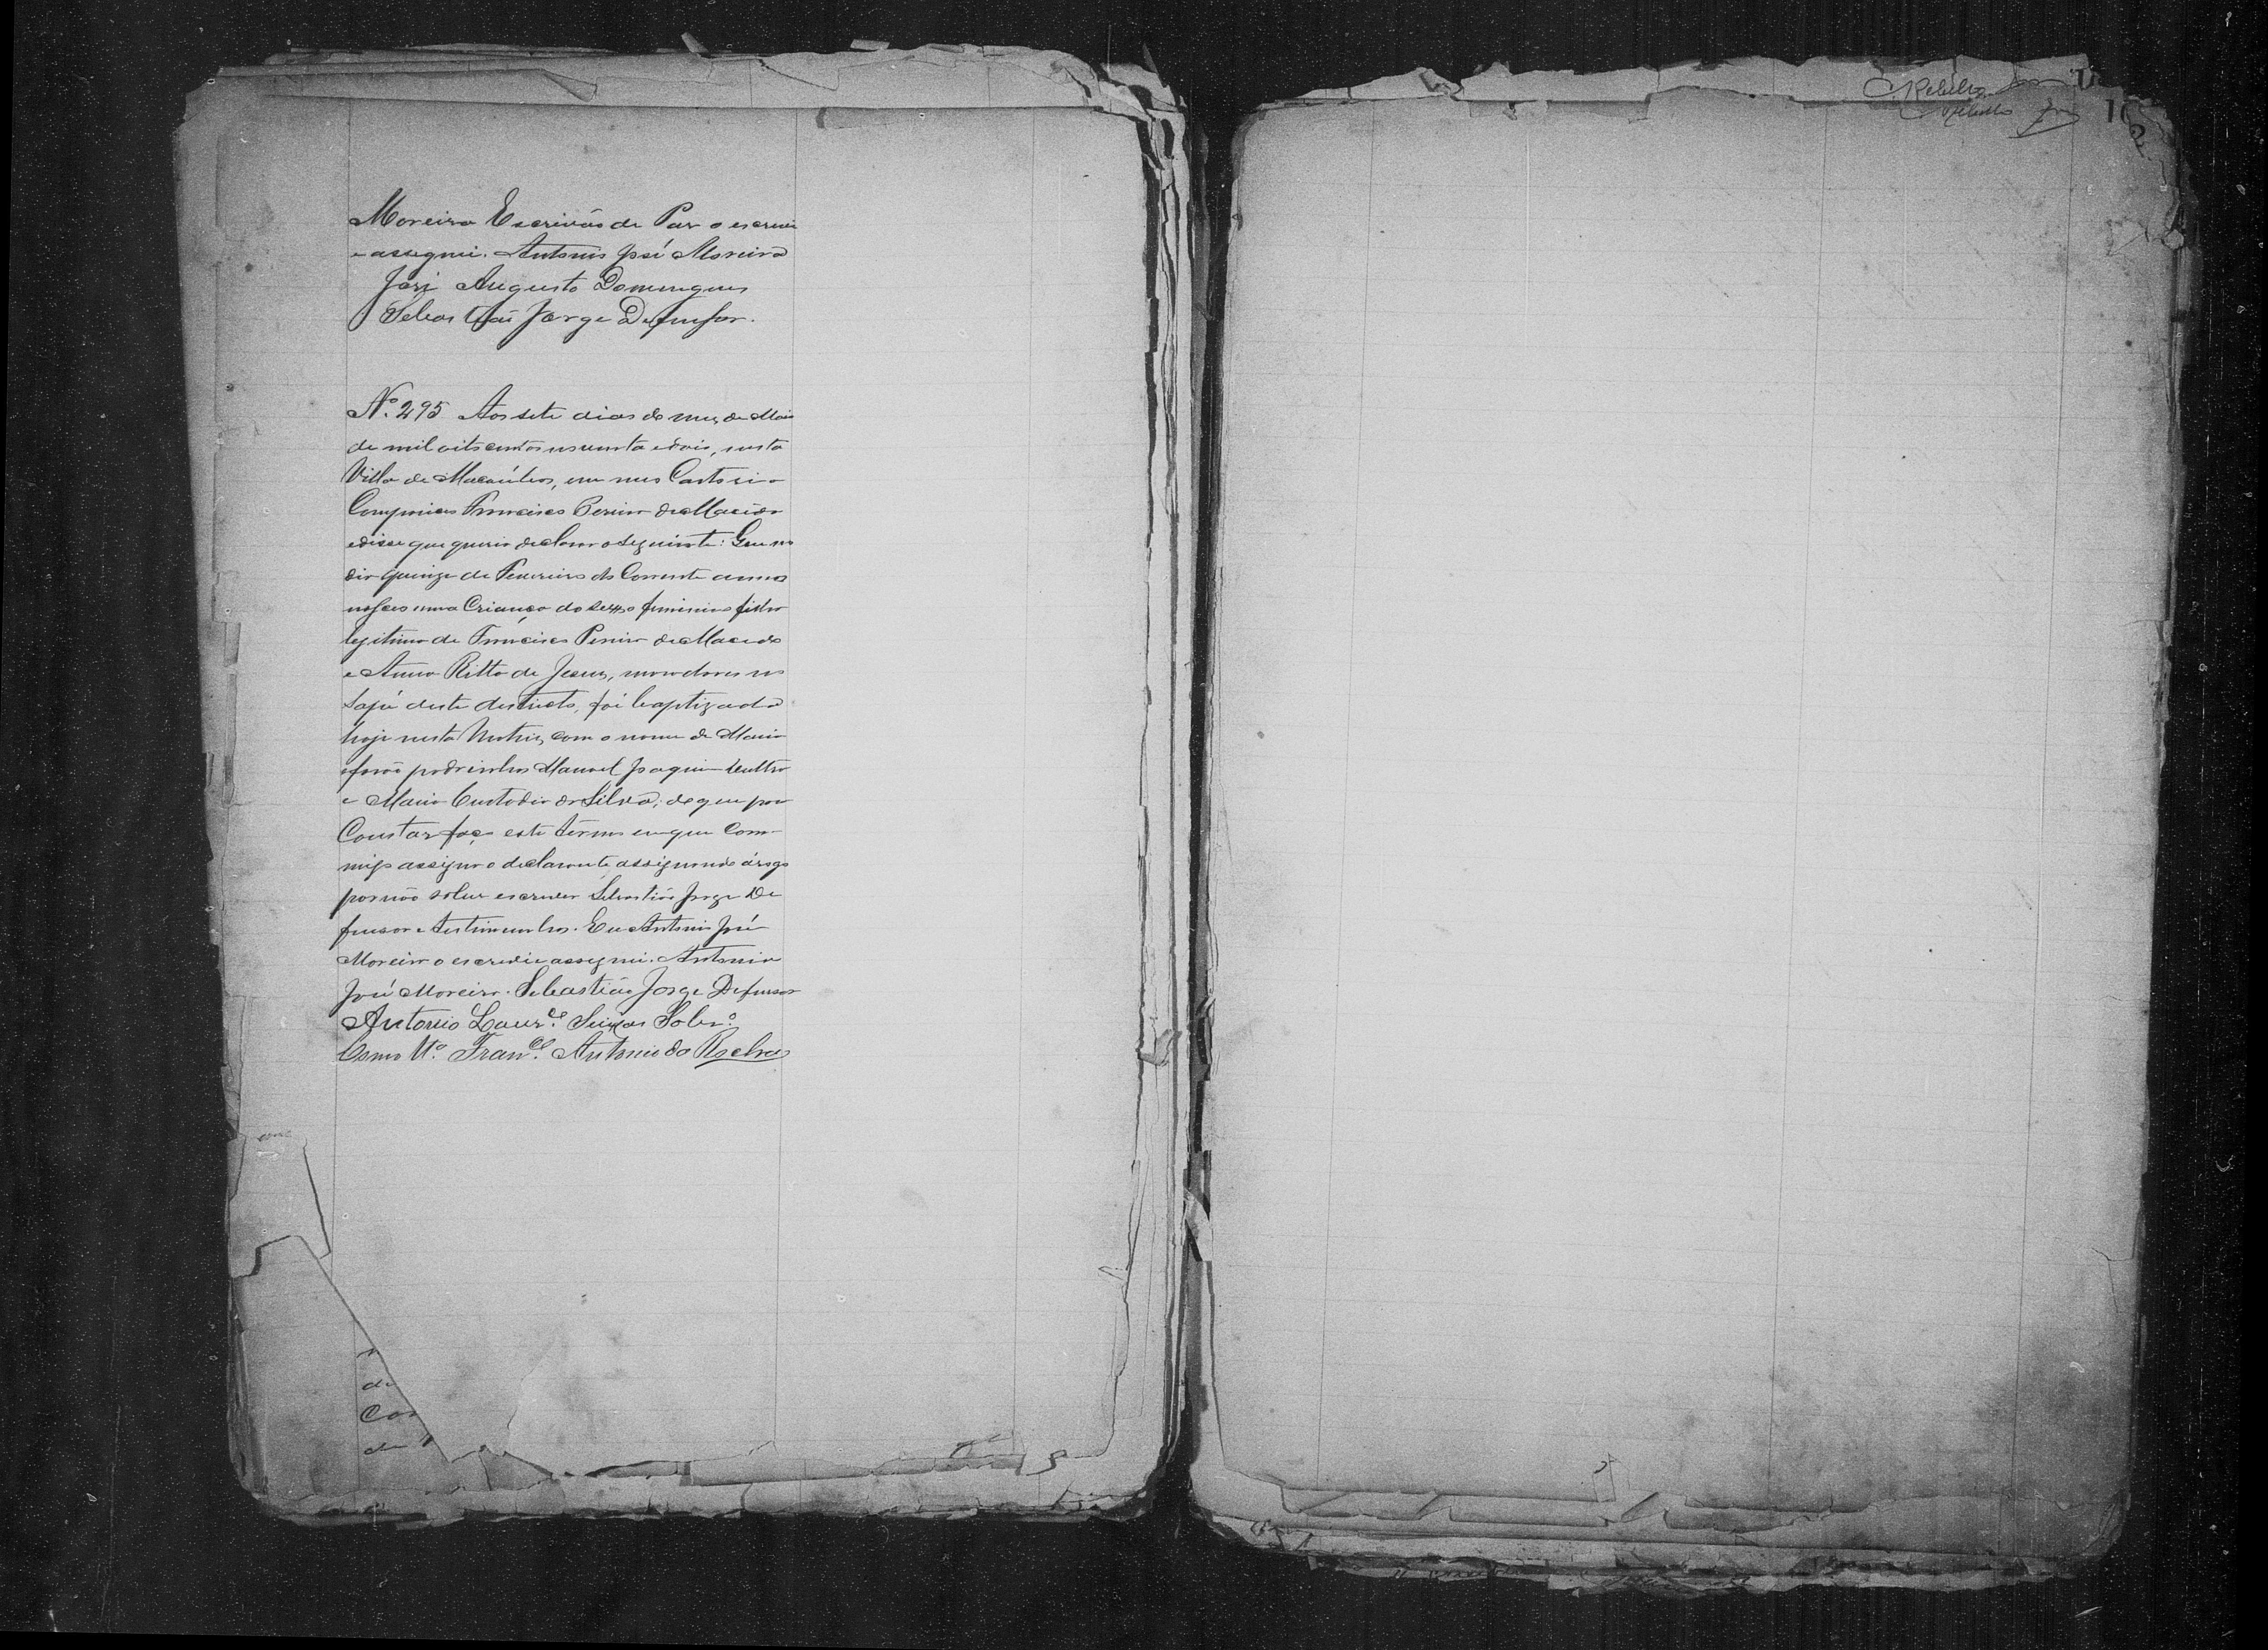 Moreira Escrivão de Paz o escrevi
e assignei. Antonio José Moreira
José Augusto Domingues
Sebastião Jorge Defensor.
Nº. 295 Aos sete dias do mez de Maio
de mil oitocentos noventa e dois, nesta
Villa de Macaúbas, em meu Cartorio
Compareceo Francisco Pereira de Macêdo
e disse que queria declarar o seguinte: Que no
dia quinze de Fevereiro do Corrente anno
nasceo uma Criança do sexo feminino filha
legitima de Francisco Pereira de Macedo
e Anna Ritta de Jesus, moradores no
Sapé deste destricto, foi baptizada
hoje nesta Matriz, com o nome de Maria
e forão padrinhos Manoel Joaquim
e Maria Custodia da Silva; do que para
Constar faço este termo em que Com-
migo assigna o declarante, assignando á rogo
por não saber escrever Sebastião Jorge De
fensor e testimunhas. Eu Antonio José
Moreira o escrevi e assignei. Antonio
José Moreira. Sebastião Jorge Defensor
Antonio Lour.ço Seixas Sobr.º
Como Fran.co Antonio da Rocha
de
Con
de
Rebello
Rebello